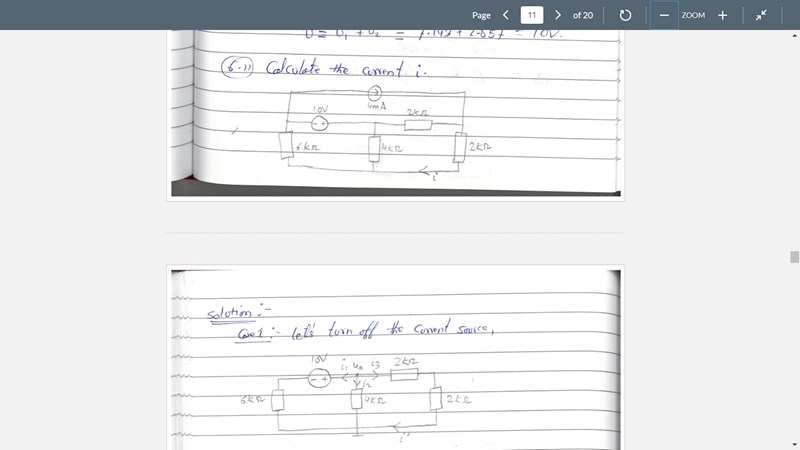 Page 11 of 20 ZOOM
U = U₁ + U₂ = 7.142 + 2.857 = 10V.
6.11 Calculate the current i.
4mA
10V 2kΩ
6kΩ 4kΩ 2kΩ
i
Solution:-
Case 1:- Let's turn off the current source,
10V i₁ uₐ i₃ 2kΩ
i₂
6kΩ 4kΩ 2kΩ
i'